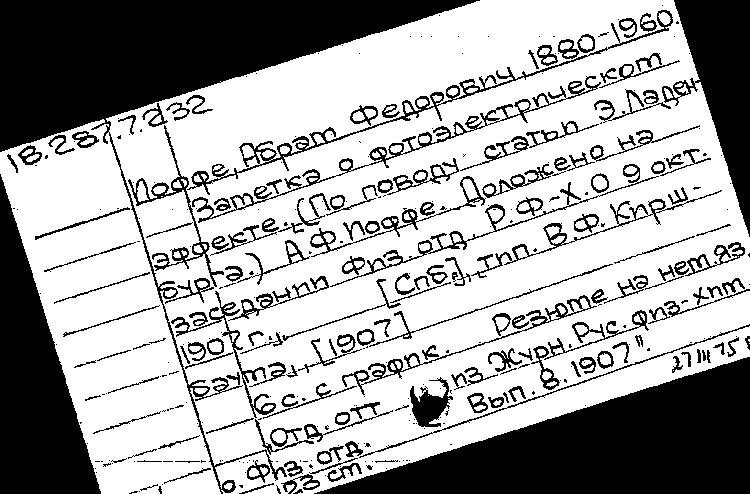 18.287.7.232
Иоффе, Абрам Федорович, 1880-1960.
Заметка о фотоэлектрическом
эффекте. (По поводу статьи Э. Ладен-
бурга.) А.Ф. Иоффе. Доложено на
заседании Физ. отд. Р.Ф.-Х.О 9 окт.
1907 г. [Спб], тип. В.Ф. Кирш-
баума, [1907]
6 с. с график. Резюме на нем. яз.
Отд. отт из Журн. Рус. физ-хим.
о. Физ. отд. Вып. 8. 1907".
23 см.
27 III 75